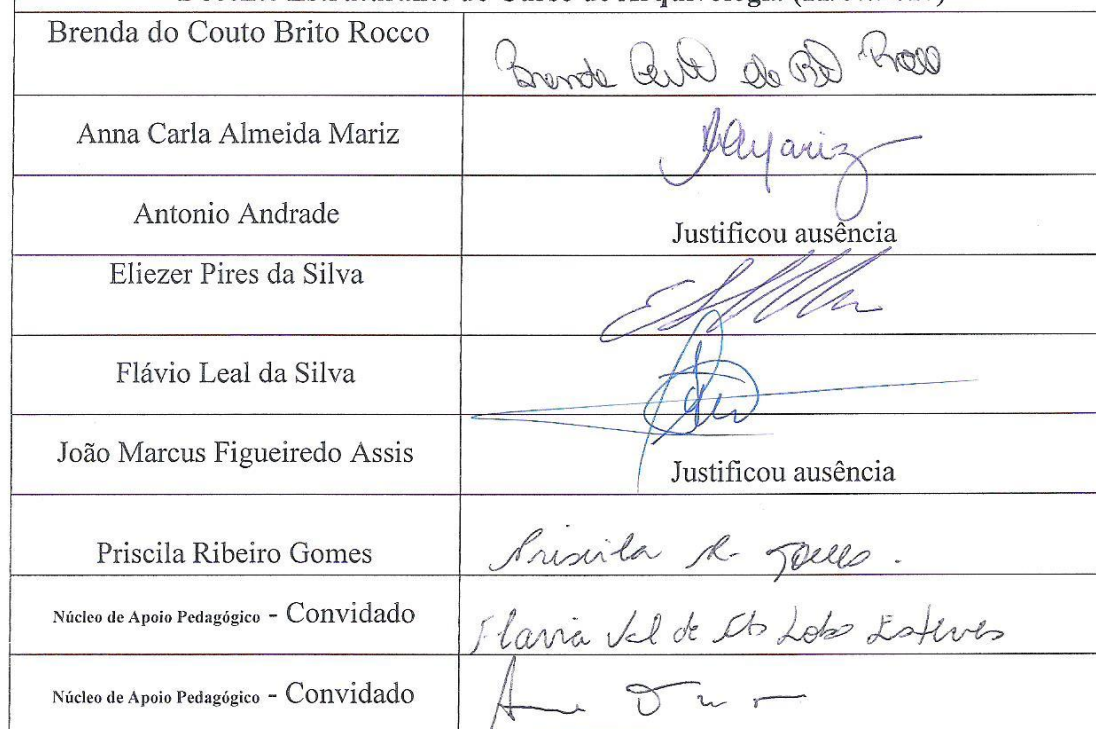 Docente Estruturante do Curso de Arquivologia
Brenda do Couto Brito Rocco
Anna Carla Almeida Mariz
Antonio Andrade
Justificou ausência
Eliezer Pires da Silva
Flávio Leal da Silva
João Marcus Figueiredo Assis
Justificou ausência
Priscila Ribeiro Gomes
Priscila R. Gomes.
Núcleo de Apoio Pedagógico - Convidado
Flavia Lobo Esteves
Núcleo de Apoio Pedagógico - Convidado